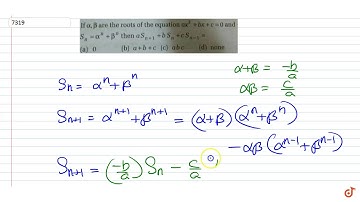 7319
If α, β are the roots of the equation ax² + bx + c = 0 and
Sₙ = αⁿ + βⁿ then a Sₙ₊₁ + b Sₙ + c Sₙ₋₁ =
(a) 0 (b) a + b + c (c) abc (d) none
α+β = -b/a
αβ = c/a
Sₙ = αⁿ + βⁿ
Sₙ₊₁ = αⁿ⁺¹ + βⁿ⁺¹ = (α+β) (αⁿ + βⁿ)
- αβ (αⁿ⁻¹ + βⁿ⁻¹)
Sₙ₊₁ = (-b/a) Sₙ - c/a
doubtnut